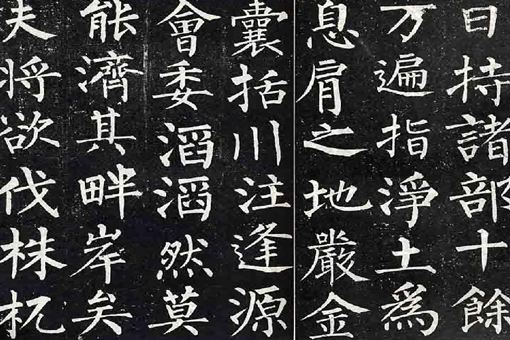 日持諸部十餘
万遍指淨土爲
息肩之地嚴金
囊括川注逢源
會委滔滔然莫
能濟其畔岸矣
夫将欲伐株杌